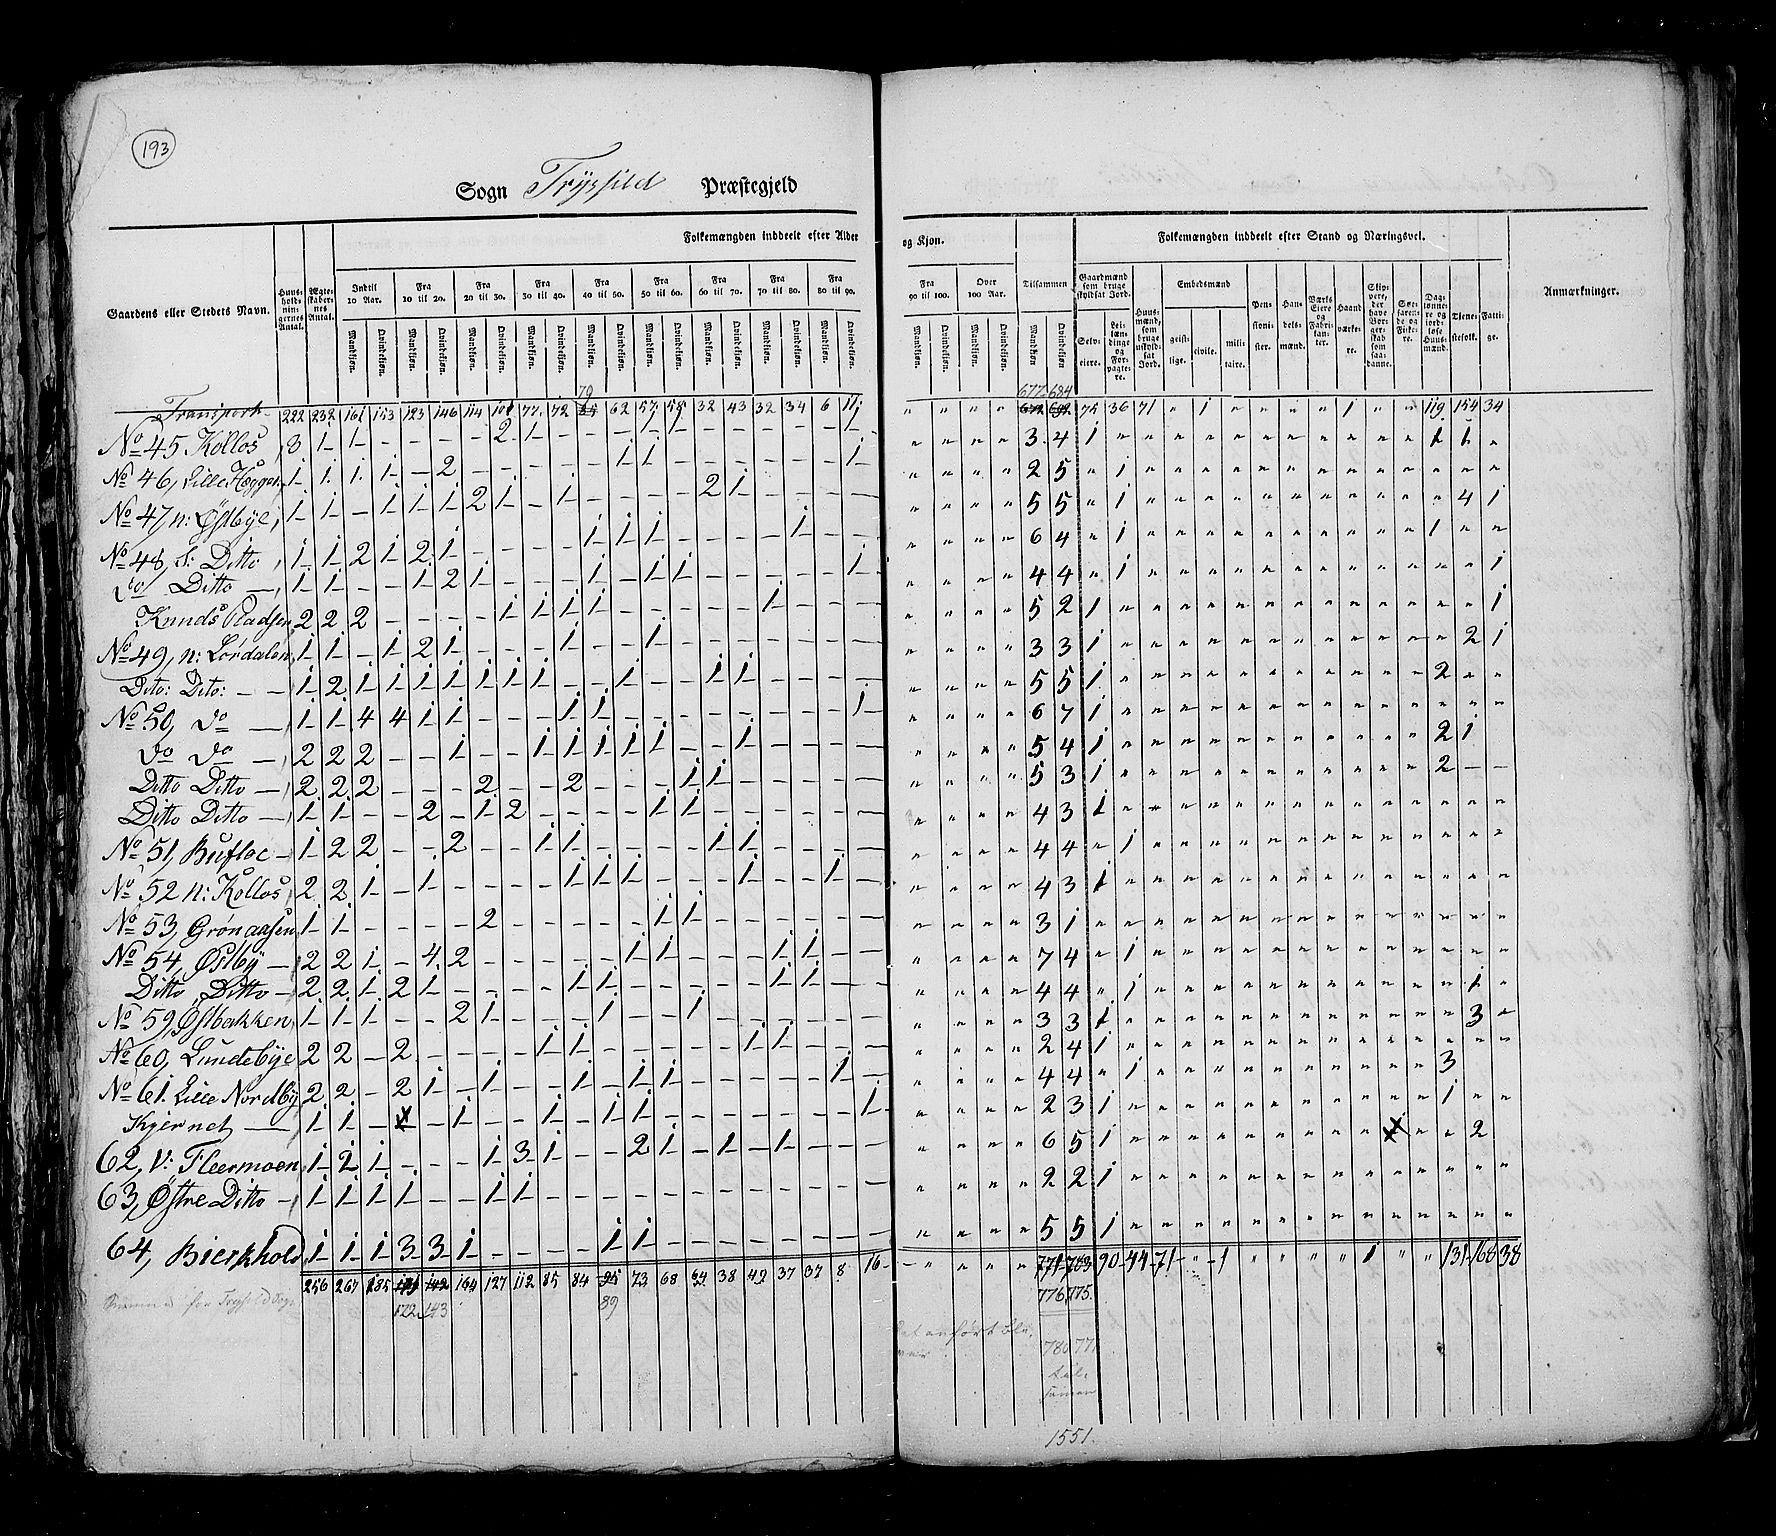 193
Sogn Trysild Præstegjeld
Gaardens eller Stedets Navn.
Huusholdningernes Antal.
Ægteskabernes Antal.
Folkemængden inddeelt efter Alder og Kjøn.
Indtil 10 Aar. Fra 10 til 20. Fra 20 til 30. Fra 30 til 40. Fra 40 til 50. Fra 50 til 60. Fra 60 til 70. Fra 70 til 80. Fra 80 til 90. Fra 90 til 100. Over 100 Aar. Tilsammen
Mandkjøn. Qvindekjøn.
Folkemængden inddeelt efter Stand og Næringsvei.
Gaardmænd som bruge skyldsat Jord.
Selveiere.
Leilændinge og Forpagtere.
Huusmænd, som bruge uskyldsat Jord.
Embedsmænd
geistlige. civile. militaire.
Pensionister.
Handelsmænd.
Værks Eiere og Fabrikanter.
Haandværkere.
Skippere, der have Borgerskab som saadanne.
Søefarende og Fiskere.
Daglønnere og jordløse Huusmænd.
Tjenestefolk.
Fattige.
Anmærkninger.
79 677 684
Transport 222 232 161 153 123 146 114 101 77 72 62 57 55 32 43 32 34 6 11 " " " " 75 36 71 " 1 " " " " 1 " " 119 154 34
No 45 Kollos 3 1 1 – – – – 2 1 – – – 1 1 – – – – – 1 " " " " 3 4 1 1 1
No 46, Lille Hegger 1 1 1 1 – 2 – – – – – 1 1 – – – – – – 1 " " " " 2 5 " 1
No 47, n: Østbye, 1 1 – 1 1 1 2 1 – 1 – – – – 2 1 – – – – " " " " 5 5 " 1 4 1
No 48, S: Ditto 1 1 2 1 2 1 – – – – 1 1 1 – – – – 1 – – " " " " 6 4 " 1 1
do Ditto 1 1 – – 1 2 1 – – – 1 – 1 1 – – – – – 1 " " " " 4 4 " 1 1
Knuds Pladsen 2 2 2 – – – – 1 1 1 1 – – – – – 1 – – – " " " " 5 2 1 1
No 49, n: Lørdalen 1 1 – 1 2 1 – – – 1 – – 1 – – – – – – – " " " " 3 3 1 2 1
Dito: Dito: 1 2 1 1 1 1 1 1 1 – – 1 – – 1 1 – – – – " " " " 5 5 1 2
No 50, do 1 1 4 4 1 1 – – – 1 1 – – – – – – – – 1 " " " " 6 7 1
do do 2 2 2 – – 1 – – 1 1 1 1 1 – – 1 – – – – " " " " 5 4 1 2 1
Ditto Ditto 2 2 2 – – – 2 – – 2 – – – 1 1 – – – – " " " " 5 3 1 2
Ditto Ditto 1 1 – – 2 – 1 2 – – – – 1 1 – – – – – – " " " " 4 3 1
No 51, Bufloe 1 2 2 – – 2 – – 1 1 – – – – 1 1 – – – – " " " " 4 4 " 1
No 52 n: Kollos 2 2 1 – 1 – – – – 1 1 1 – – – 1 – – 1 – " " " " 4 3 1
No 53, Grønaasen 1 1 – – – – 2 – – – – – 1 1 – – – – – – " " " " 3 1
No 54, Østby 2 2 1 – 4 2 – – – – – 1 1 – – – 1 1 – – " " " " 7 4 " 1
Ditto Ditto 2 2 1 2 1 – – – – 1 1 – – – – – 1 1 – – " " " " 4 4 " 1 1
No 59, Østbakken 1 1 1 – – 2 1 – – – 1 – – 1 – – – – – – " " " " 3 3 1 3
No 60, Lundebye 2 2 – 2 – – – – 1 1 – – – – – 1 1 – – – " " " " 2 4 1
No 61. Lille Nordby 2 2 – 2 1 – 1 – – 1 – 1 1 – – – – – 1 – " " " " 4 4 " 1 3
Kjernet 1 1 – – 1 – – 1 – 1 1 – – – – – – 1 " " " " 2 3 1 1
62, V: Fleermoen 1 2 1 – – – 1 3 1 – – 2 1 – 1 – 1 – – – " " " " 6 5 1 2
63, Østre Ditto 1 1 1 1 – – 1 1 – – – – – – – – – – – – " " " " 2 2 1
64, Bierkhold 1 1 1 3 3 1 – – – – 1 1 – – – – – – – – " " " " 5 5 1
256 267 185 164 127 112 85 84 73 68 64 38 42 37 37 8 16 " " " " 771 783 90 44 71 " 1 " " " " 1 " " 131 168 38
172 143 89 776 775
Summa for Trysild Sogn
anført ble
780 771
1551.